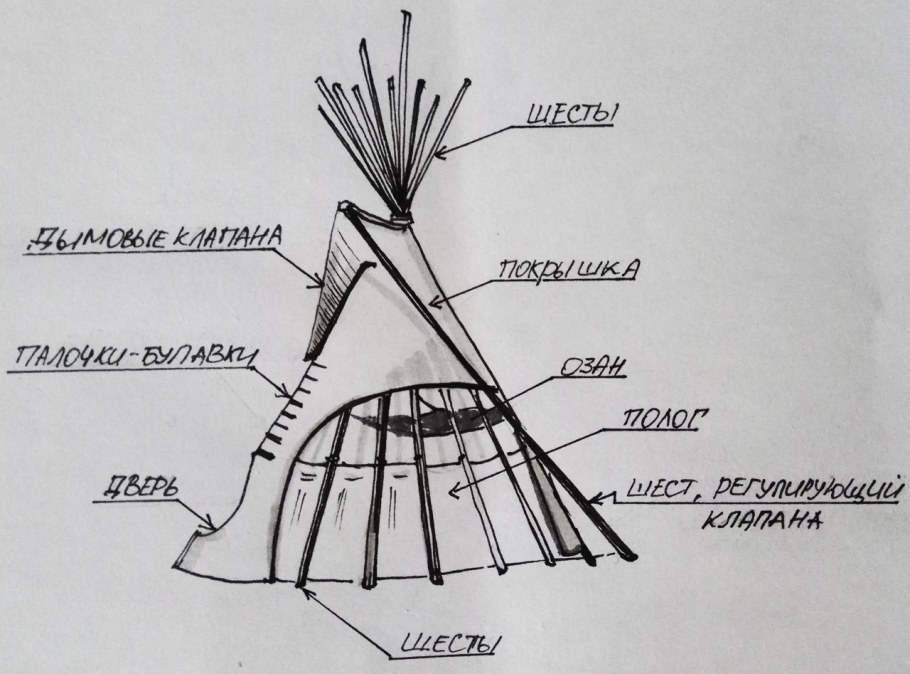 ШЕСТЫ
ДЫМОВЫЕ КЛАПАНА
ПОКРЫШКА
ПАЛОЧКИ-БУЛАВКИ
ОЗАН
ПОЛОГ
ДВЕРЬ
ШЕСТ, РЕГУЛИРУЮЩИЙ
КЛАПАНА
ШЕСТЫ